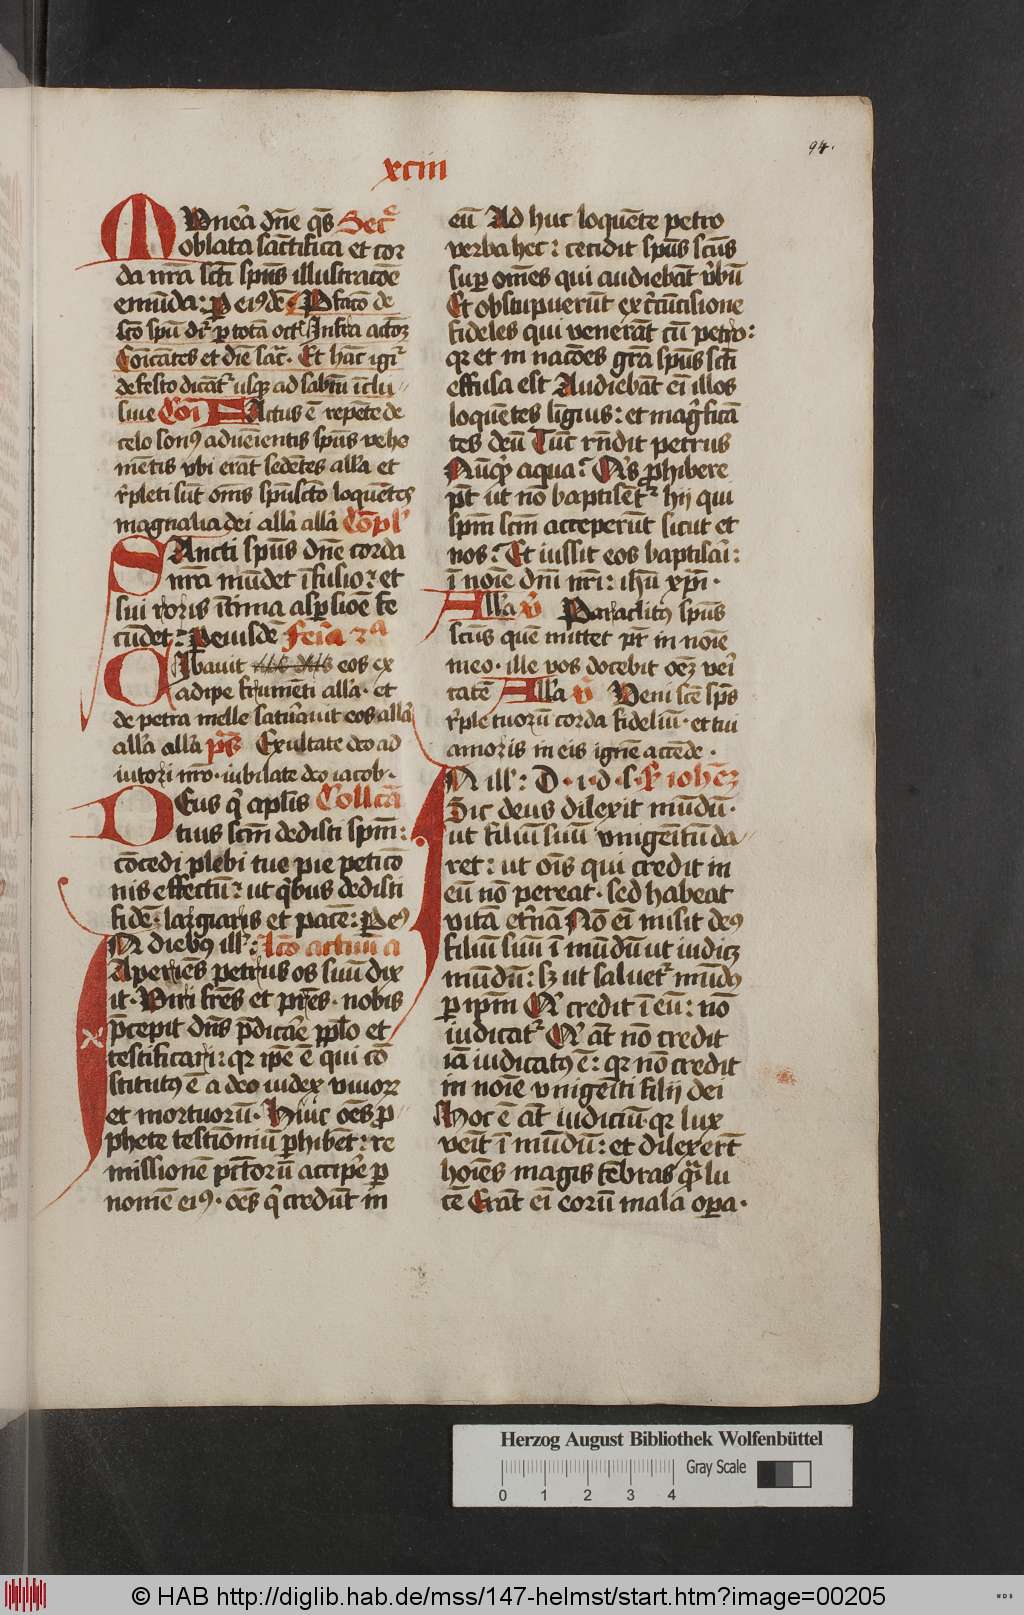 94.
xciii
Munera dn̄e q̄s Secr̄
oblata sanctifica et cor
da nr̄a sct̄i spūs illustracōe
emūda: ꝑ eiꝰdē Pfacō de
scō spū dr̄ ꝑ totā oct̄ Infra actōꝫ
Cōicātes et diē sac̄. Et hāc igr̄
de festo dicāt̄ usqꝫ ad sabtū īclu-
siue Coī Factus ē repēte de
celo sonꝰ aduēientis spūs vehe
mētis vbi erāt sedētes all'a et
r̄pleti sūt om̄s spūsctō loquētes
magnalia dei all'a all'a Cōpl'
Sancti spūs dn̄e corda
nr̄a mūdet īfusio: et
sui roris ītima aspsiōe fe
cūdet: Peiusdē feria 2a
Cibauit eos ex
adipe frumēti all'a. et
de petra melle saturauit eos all'a
all'a all'a ps̄ Exultate deo ad
iutori nr̄o. iubilate deo iacob.
Deus q̄ aplīs Collcā
tuis scm̄ dedisti spm̄:
cōcedi plebi tue pie peticō
nis effectū: ut qībus dedisti
fidē. largiaris et pacē: Peꝰ
In diebꝰ ill': Lcō actuū a
Aperiēs petrus os suū dix
it. Viri fr̄es et pr̄es. nobis
p̄cepit dn̄s p̄dicare pplo et
testificari: qr ip̄e ē qui cō
stitutꝰ ē a deo iudex viuorꝫ
et mortuorū. Huic oēs ꝓ-
phete testimoniū ꝑhibēt: re
missionē pct̄orū accipe ꝑ
nomē eiꝰ. oēs q̄ credūt in
eū Ad huc loquēte petro
verba hec: cecidit spūs scūs
suꝑ om̄es qui audiebāt v̄bū
Et obstupuerūt ex cīcūcisione
fideles qui venerāt cū petro:
qr et in nacōes grā spūs sct̄i
effusa est Audiebāt ei illos
loquētes līgwis: et magīficā
tes deū Tūc rn̄dit petrus
Nūqd aqua: Qīs ꝓhibere
pt̄ ut nō baptisēt̄ hij qui
spm̄ scm̄ acceperūt sicut et
nos: Et iussit eos baptisari:
ī noīe dn̄i nr̄i: ihū xp̄i.
All'a v̄ Paraclitꝰ spūs
scūs quē mittet pr̄ in noīe
meo. ille vos docebit oēꝫ veī
tatē All'a v̄ Veni scē sps̄
r̄ple tuorū corda fideliū. et tui
amoris in eis ignē accēde.
In ill': D. i. d. s. P iohēꝫ
Sic deus dilexit mūdū.
ut filiū suū vnigeītū da-
ret: ut oīs qui credit in
eū nō pereat. sed habeat
vitā et̄nā Nō eī misit deꝰ
filiū suū ī mūdū ut iudicꝫ
mūdū: sꝫ ut saluet̄ mūdꝰ
ꝑ ipm̄ Qi credit ī eū: nō
iudicat̄ Qi āt nō credit
iā iudicatꝰ ē: qr nō credit
in noīe vnigeīti filij dei
Hoc ē āt iudiciū. qr lux
veīt ī mūdū: et dilexert̄
hoīes magis tēbras qm̄ lu
cē Erāt eī eorū mala oꝑa.
Herzog August Bibliothek Wolfenbüttel
Gray Scale
0 1 2 3 4
© HAB http://diglib.hab.de/mss/147-helmst/start.htm?image=00205